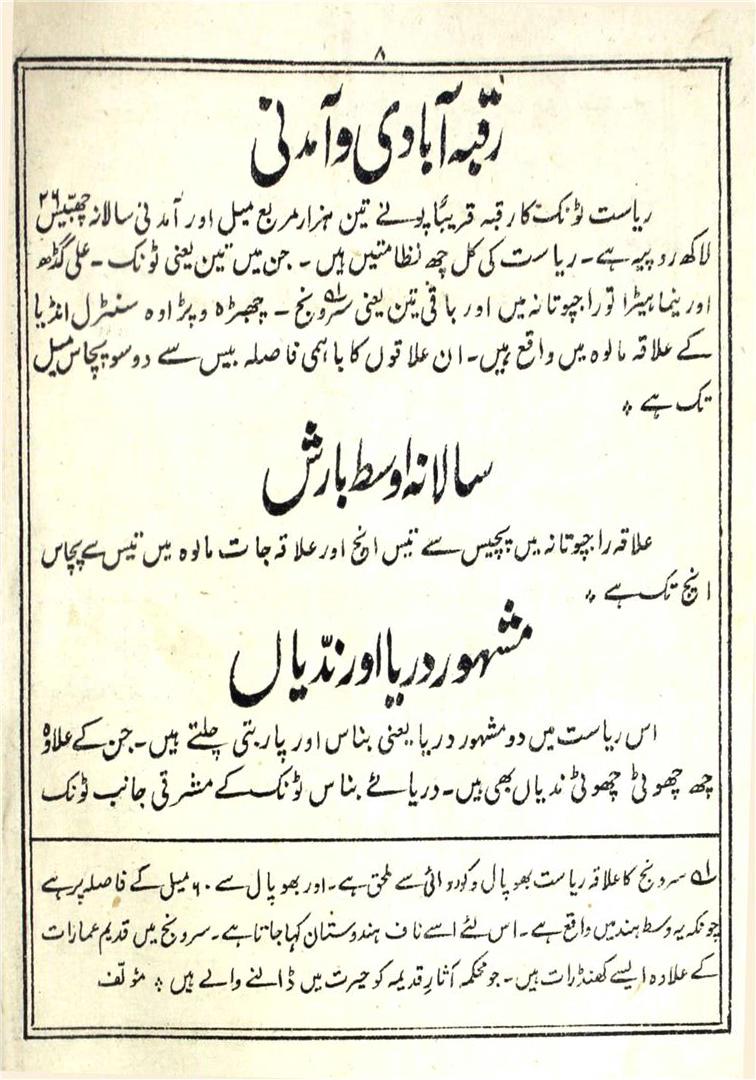 ۸
رقبہ آبادی و آمدنی
ریاست ٹونک کا رقبہ قریباً پونے تین ہزار مربع میل اور آمدنی سالانہ چھبیس ۲۶
لاکھ روپیہ ہے۔ ریاست کی کل چھ نظامتیں ہیں۔ جن میں تین یعنی ٹونک۔ علی گڈھ
اور نیماہیڑا تو راجپوتانہ میں اور باقی تین یعنی سرونج ۱؎۔ چھبڑہ و پڑاوہ سنٹرل انڈیا
کے علاقہ مالوہ میں واقع ہیں۔ ان علاقوں کا باہمی فاصلہ بیس سے دو سو پچاس میل
تک ہے ۔
سالانہ اوسط بارش
علاقہ راجپوتانہ میں پچیس سے تیس انچ اور علاقہ جات مالوہ میں تیس سے پچاس
انچ تک ہے ۔
مشہور دریا اور ندّیاں
اس ریاست میں دو مشہور دریا یعنی بناس اور پاربتی چلتے ہیں۔ جن کے علاوہ
چھ چھوٹی چھوٹی ندیاں بھی ہیں۔ دریائے بناس ٹونک کے مشرقی جانب ٹونک
۱؎ سرونج کا علاقہ ریاست بھوپال و کوروائی سے ملحق ہے۔ اور بھوپال سے ۶۰ میل کے فاصلہ پر ہے
چونکہ یہ وسط ہند میں واقع ہے۔ اس لئے اسے ناف ہندوستان کہا جاتا ہے۔ سرونج میں قدیم عمارات
کے علادہ ایسے کھنڈرات ہیں۔ جو محکمہ آثارِ قدیمہ کو حیرت میں ڈالنے والے ہیں ۔ مؤلّف